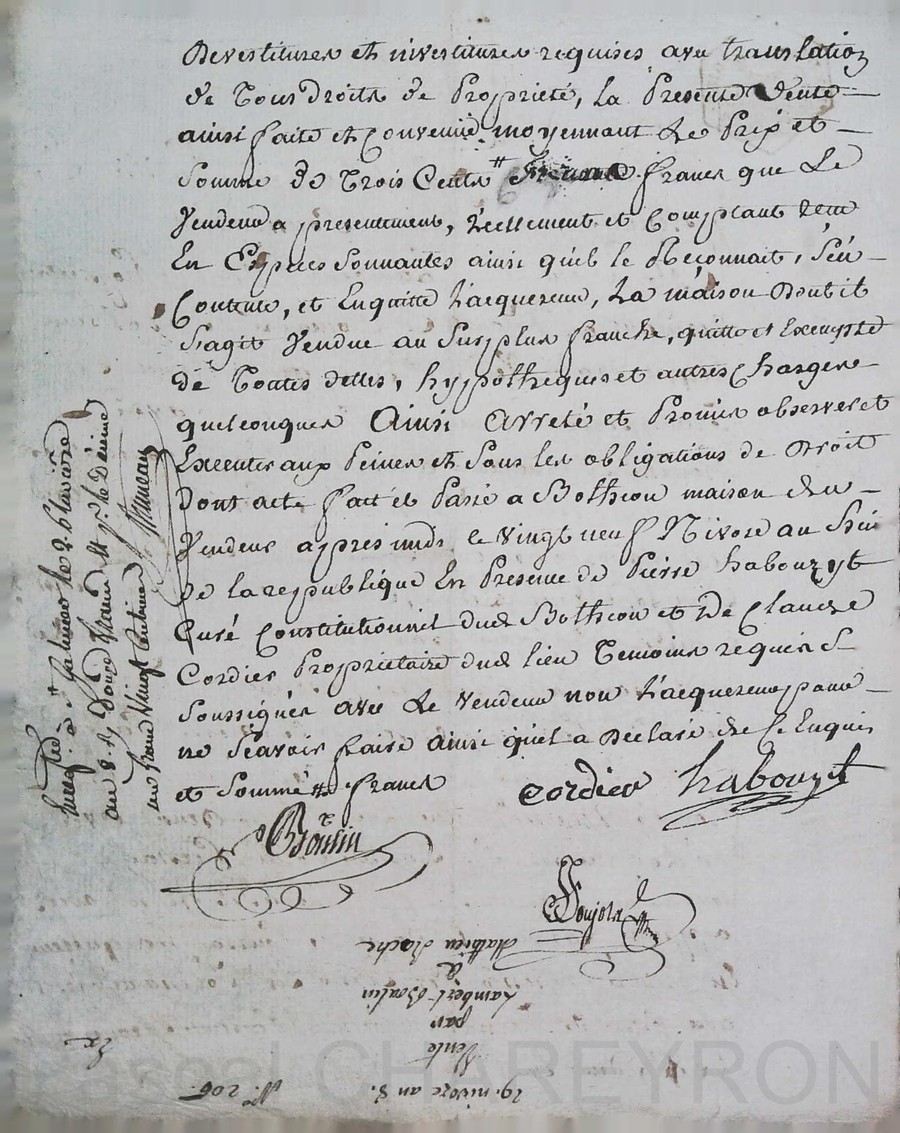 Devestitures et investitures requises avec translation
de Tous droits de Propriété, la Presente Vente
ainsi faite et Convenüe moyennant Le Prix et
Somme de Trois Cents francs que Le
Vendeur a presentement, réellement et Comptant
En Espèces Sonnantes ainsi qu'il le Reconnait, s'en
Contente, et Enquitte l'acquereur, La maison Dont il
s'agit Vendue au Surplus franche, quitte et Exempte
de Toutes dettes, hypotheques et autres Charges
quelconques Ainsi Arreté et Promis observer et
Executer aux Peines et Sous les obligations de Droit
Dont acte fait et Passé a Botheon maison du
Vendeur après midi le Vingt neuf Nivose an huit
de la republique En Presence de Pierre habouzyt
Curé Constitutionnel dud Botheon et De Claude
Cordier Propriétaire dud lieu Temoins requis &
Soussignés avec Le Vendeur non l'acquereur pour
ne Sçavoir faire ainsi qu'il a Declaré de ce Enquis
et Sommé francs
cordier habouzyt
Boulin
Enregistré à St Galmier le 2 Pluviose
an 8. Douze francs
un franc Vingt Centimes
Mathieu
a
Lambert Boulin
par
Vente
Ex
29. nivoze an 8.
N° 206.
CHAREYRON